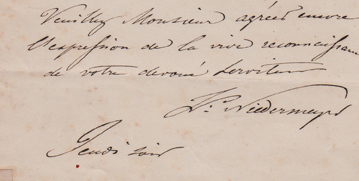 Veuillez Monsieur agréer encore
l'expression de la vive reconnaissance
de votre devoué serviteur
L. Niedermeyer
Jeudi soir